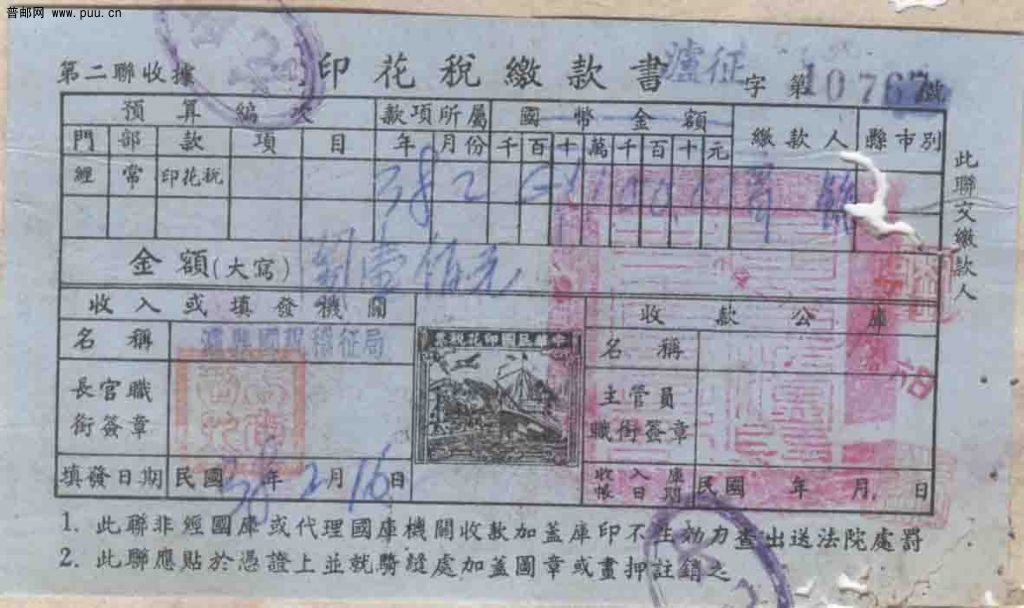 普邮网 www.puu.cn
第二聯收據 印花稅繳款書 瀘征字第10767號
預算編次 款項所屬 國幣金額 繳款人 縣市別
門 部 款 項 目 年 月份 千 百 十 萬 千 百 十 元
經 常 印花稅 38 2
金額(大寫) 壹佰元
此聯交繳款人
收入或填發機關 收款公庫
名稱 瀘縣國稅稽征局 名稱
中華民國印花稅票
長官職銜簽章 主管員職銜簽章
填發日期 民國38年2月16日 收入庫帳日期 民國 年 月 日
1. 此聯非經國庫或代理國庫機關收款加蓋庫印不生効力查出送法院處罰
2. 此聯應貼於憑證上並就騎縫處加蓋圖章或畫押註銷之